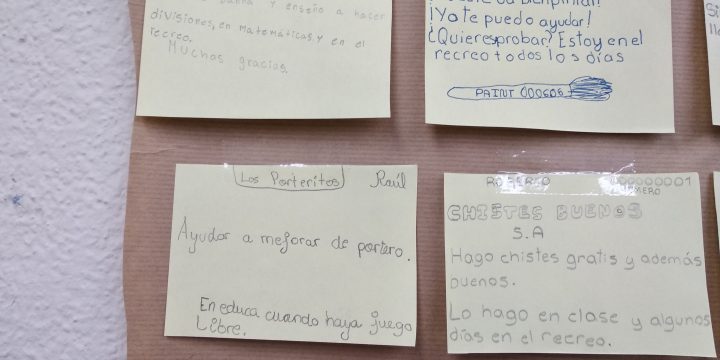 y enseño a hacer
divisiones, en matemáticas y en el
recreo.
Muchas gracias.
¡Yo te puedo ayudar!
¿Quieres probar? Estoy en el
recreo todos los días
PAINT
Los Porteritos Raúl
Ayudar a mejorar de portero.
En educa cuando haya juego
Libre.
CHISTES BUENOS
S.A
Hago chistes gratis y además
buenos.
Lo hago en clase y algunos
días en el recreo.